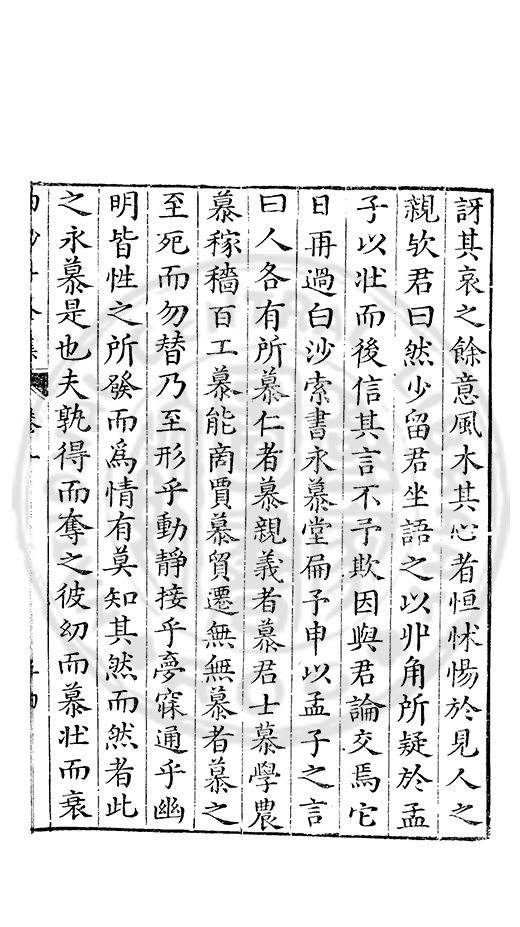 訝其哀之餘意風木其心者恒怵惕於見人之
親欤君曰然少留君坐語之以丱角所疑於孟
子以壯而後信其言不予欺因與君論交焉它
日再過白沙索書永慕堂扁予申以孟子之言
曰人各有所慕仁者慕親義者慕君士慕學農
慕稼穡百工慕能商賈慕貿遷無無慕者慕之
至死而勿替乃至形乎動靜接乎夢寐通乎幽
明皆性之所發而爲情有莫知其然而然者此
之永慕是也夫孰得而奪之彼幼而慕壯而衰